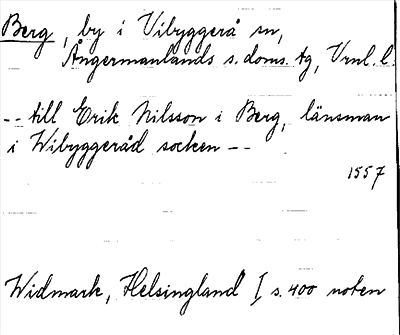 Berg, by i Vibyggerå sn,
Ångermanlands s. doms. tg, Vrnl. l.
-- till Erik Nilsson i Berg, länsman
i Wibyggeråd socken --
1557
Widmark, Helsingland I, s. 400 noten